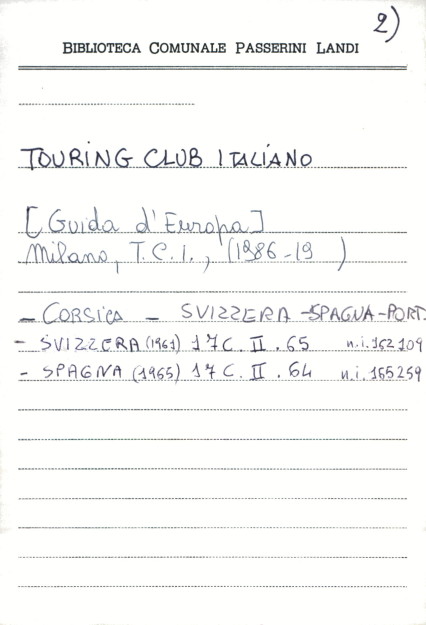 2)
BIBLIOTECA COMUNALE PASSERINI LANDI
TOURING CLUB ITALIANO
[Guida d'Europa]
Milano, T.C.I., (1986-19 )
- CORSICA - SVIZZERA - SPAGNA - PORT.
- SVIZZERA (1961) 17 C. II. 65 n.i. 162109
- SPAGNA (1965) 17 C. II. 64 n.i. 165259